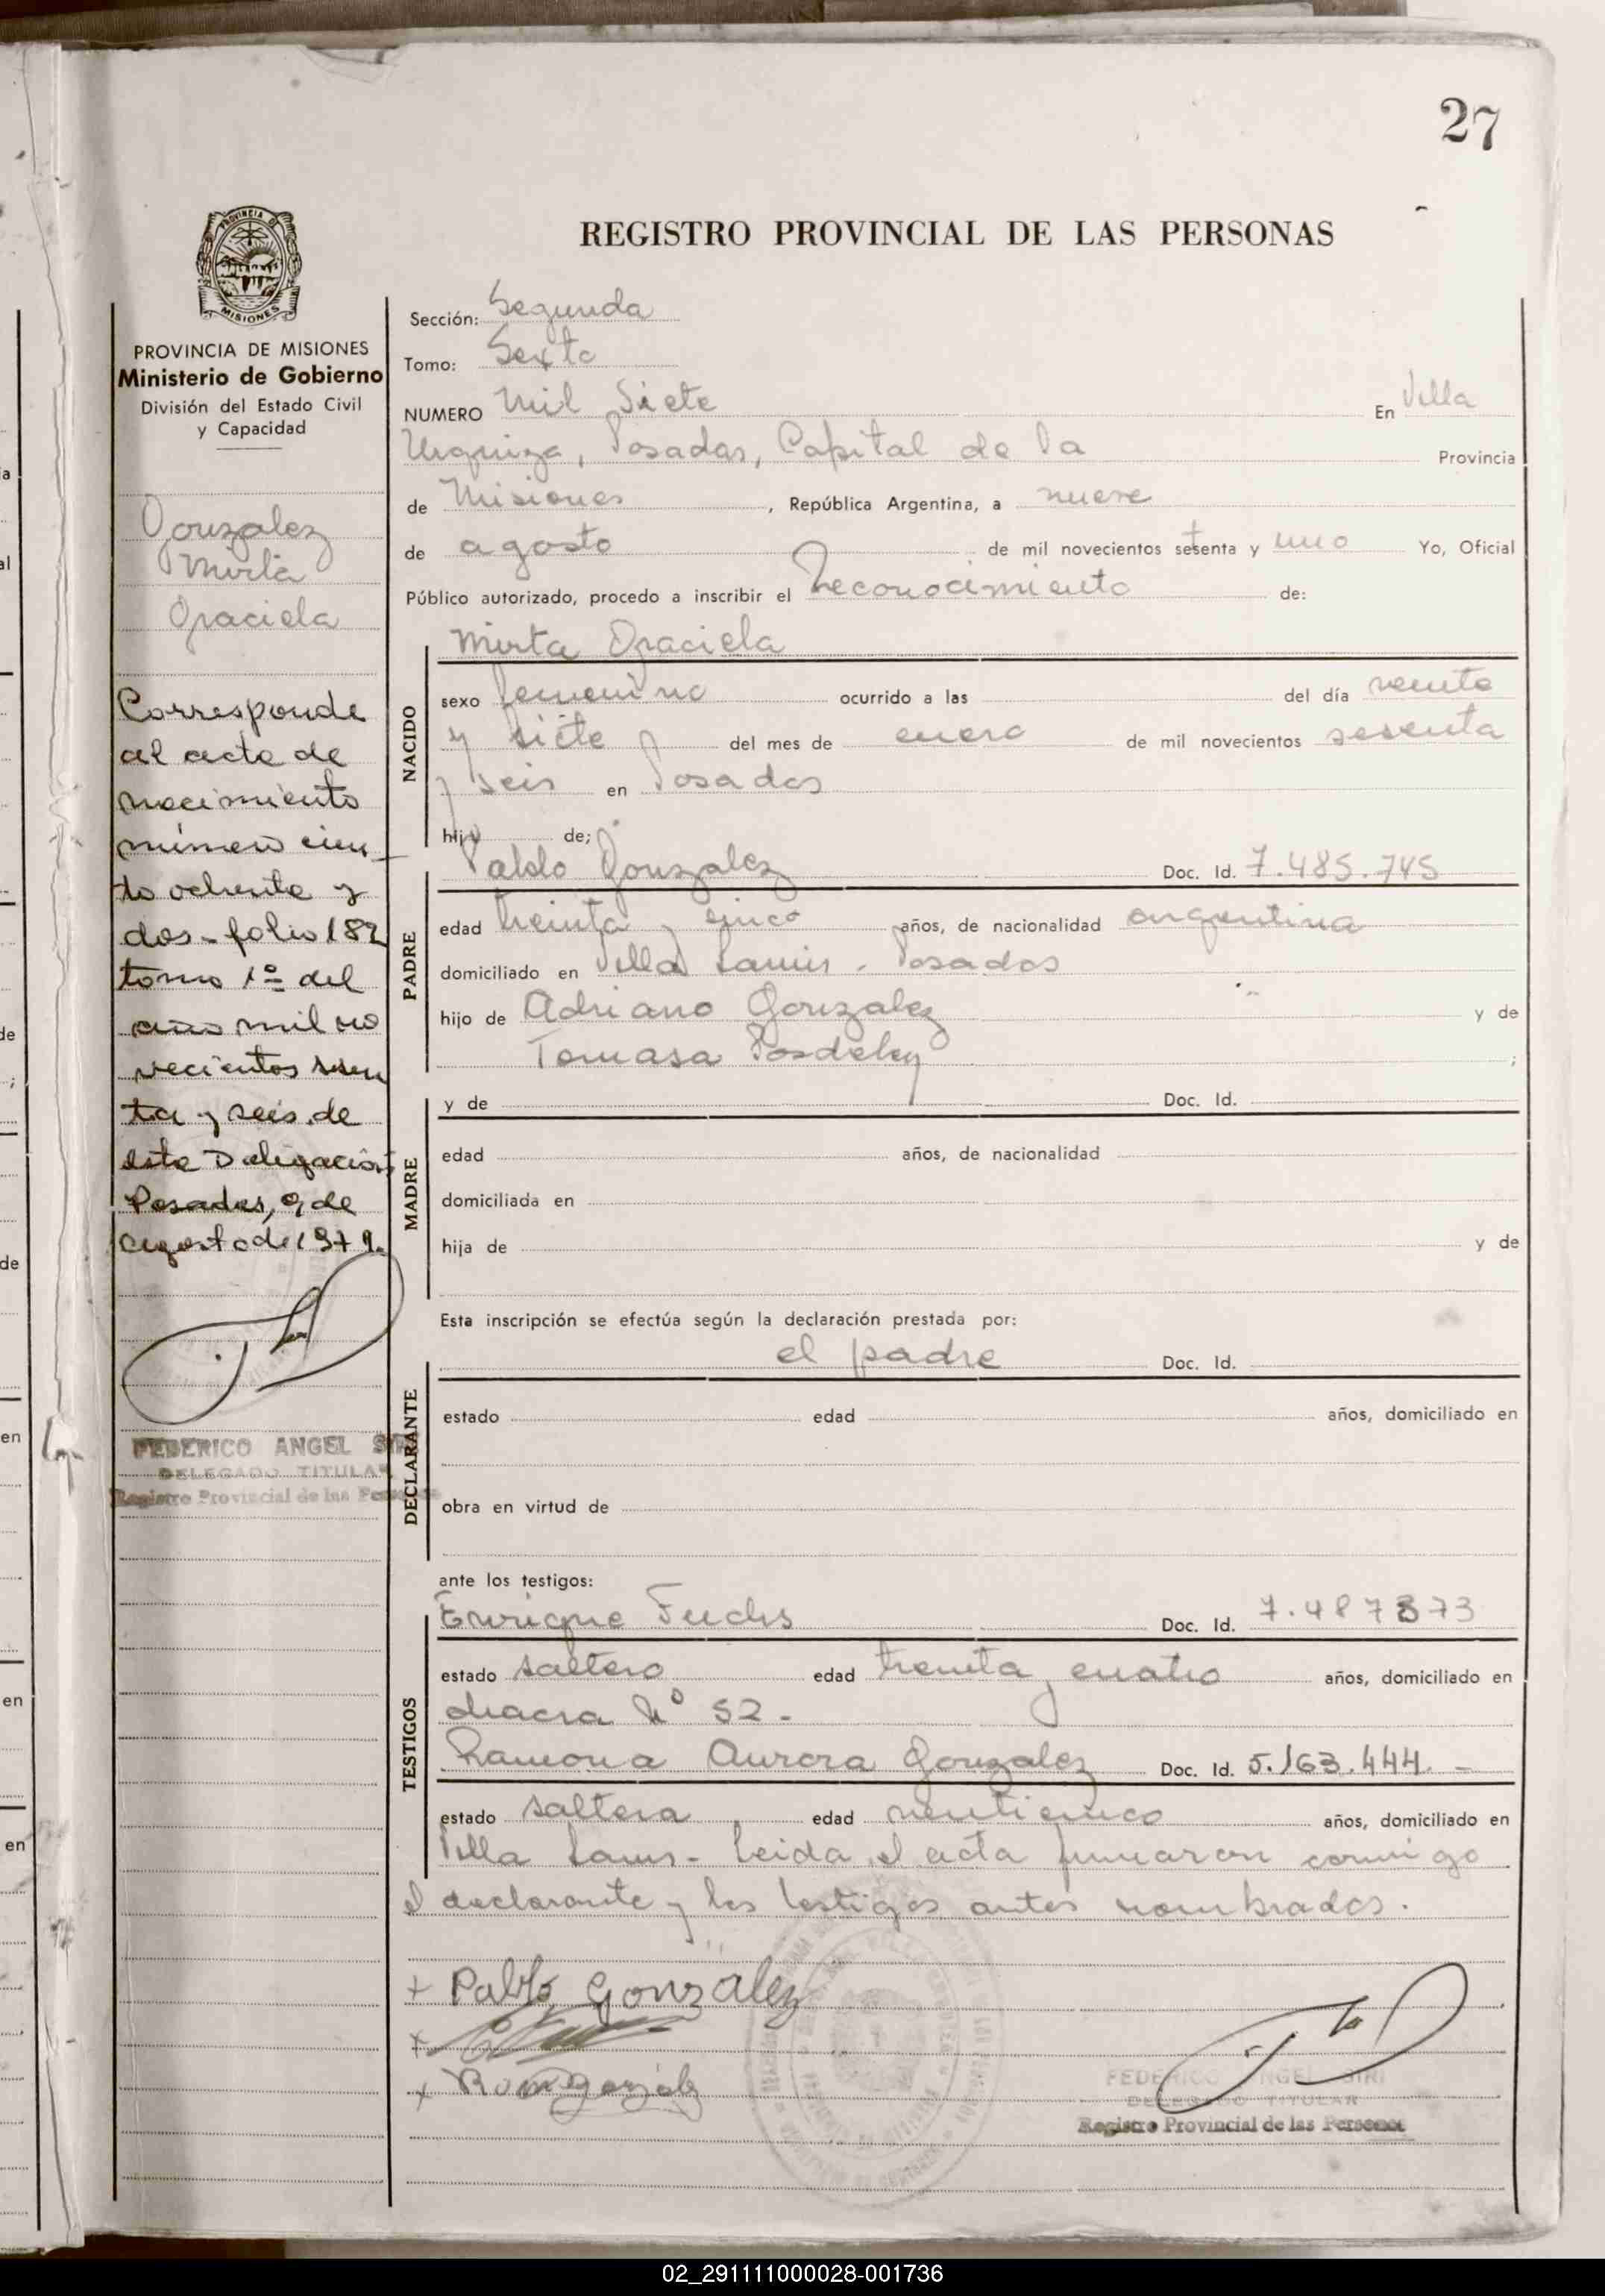 27
PROVINCIA DE
MISIONES
REGISTRO PROVINCIAL DE LAS PERSONAS
PROVINCIA DE MISIONES
Ministerio de Gobierno
División del Estado Civil
y Capacidad
Gonzalez
Mirta
Graciela
Corresponde
al acta de
nacimiento
número cien
to ochenta y
dos - folio 182
tomo 1º del
año mil no
vecientos sesen
ta y seis de
esta Delegación
Posadas, 9 de
agosto de 1971.
FEDERICO ANGEL SIRI
DELEGADO TITULAR
Registro Provincial de las Personas
Sección: Segunda
Tomo: Sexto
NUMERO Mil Siete En Villa
Urquiza, Posadas, Capital de la Provincia
de Misiones, República Argentina, a nueve
de agosto de mil novecientos setenta y uno Yo, Oficial
Público autorizado, procedo a inscribir el Reconocimiento de:
NACIDO
Mirta Graciela
sexo femenino ocurrido a las del día veinte
y siete del mes de enero de mil novecientos sesenta
y seis en Posadas
hija de;
PADRE
Pablo Gonzalez Doc. Id. 7.485.745
edad treinta y cinco años, de nacionalidad argentina
domiciliado en Villa Lanus - Posadas
hijo de Adriano Gonzalez y de
Tomasa ;
MADRE
y de Doc. Id.
edad años, de nacionalidad
domiciliada en
hija de y de
Esta inscripción se efectúa según la declaración prestada por:
DECLARANTE
el padre Doc. Id.
estado edad años, domiciliado en
obra en virtud de
ante los testigos:
TESTIGOS
Enrique Fuchs Doc. Id. 7.487873
estado soltero edad treinta y cuatro años, domiciliado en
chacra Nº 52 -
Ramona Aurora Gonzalez Doc. Id. 5.163.444. -
estado soltera edad veinticinco años, domiciliado en
Villa Lanus - Leida el acta firmaron conmigo
el declarante y los testigos antes nombrados.
+ Pablo Gonzalez
x
x
FEDERICO ANGEL SIRI
DELEGADO TITULAR
Registro Provincial de las Personas
02_291111000028-001736